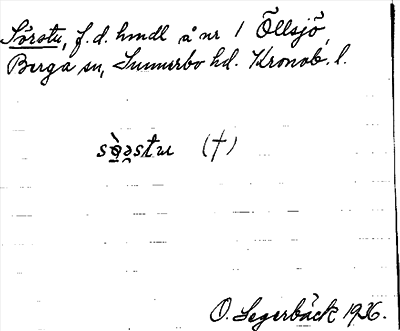 Sörstu, f.d. hmdl å nr 1 Öllsjö,
Berga sn, Sunnerbo hd. Kronob. l.
(†)
O. Segerbäck 1936.